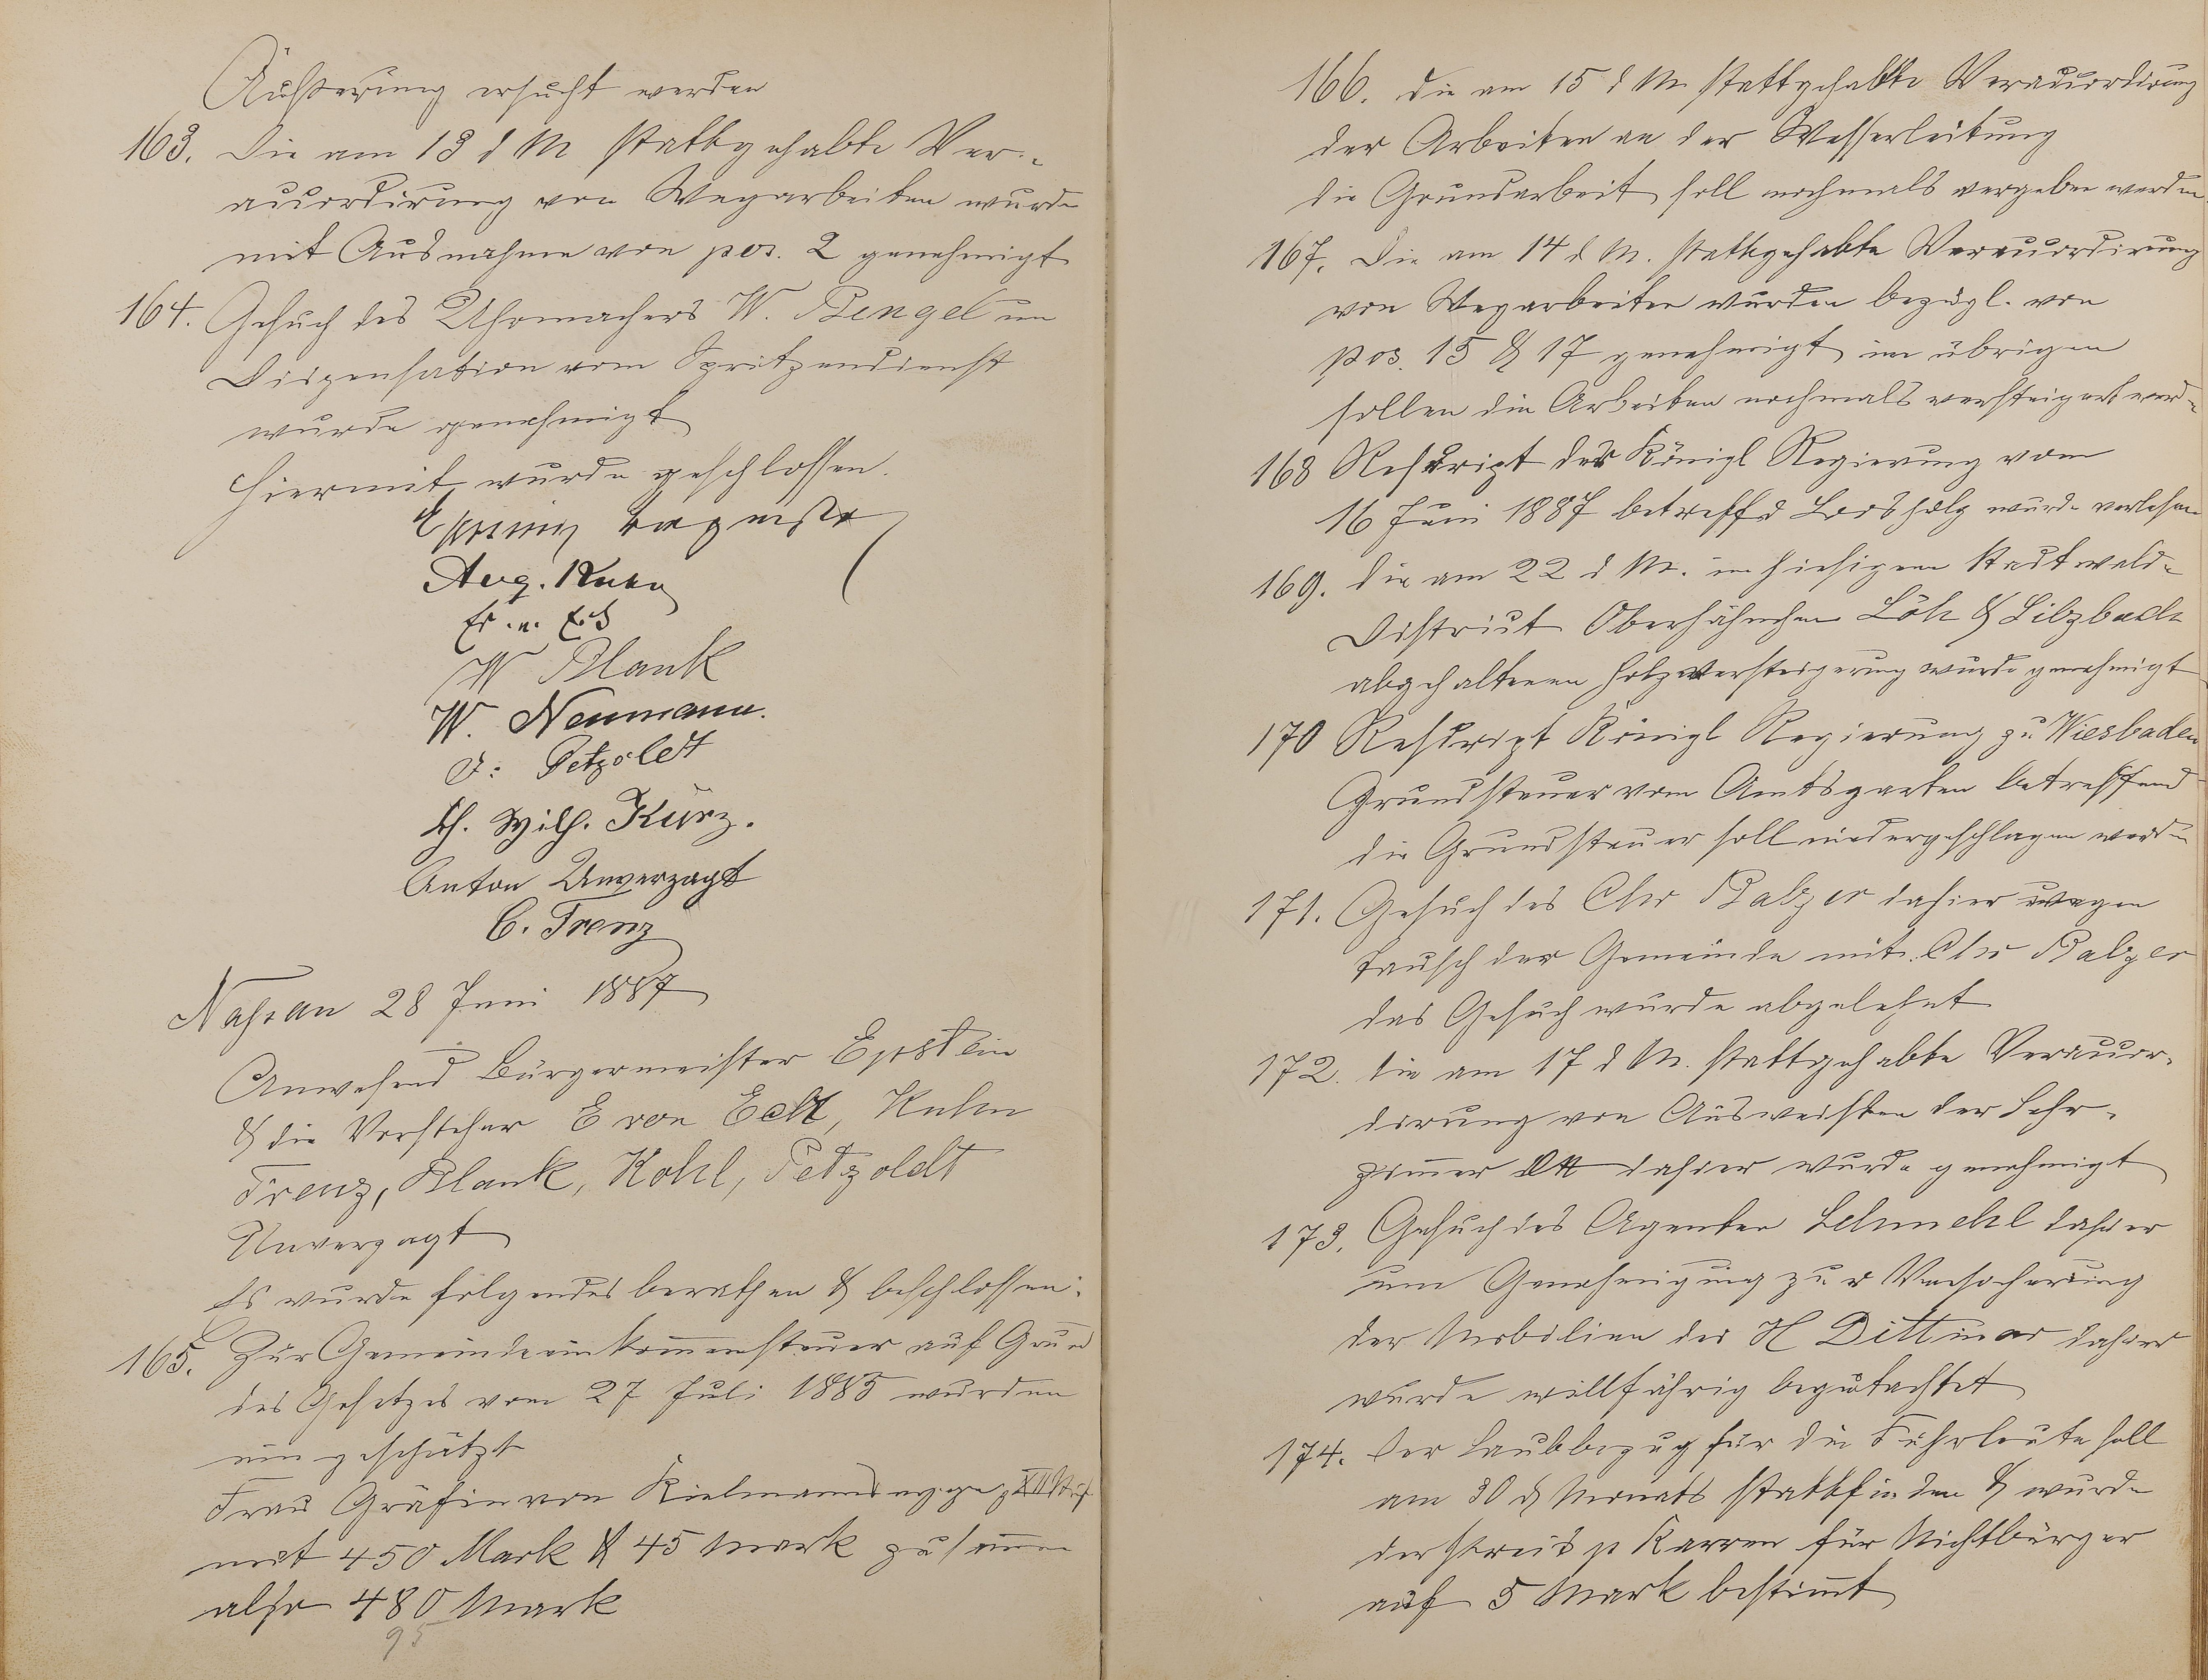 Äußerung ersucht werden
163. Die am 13 d M stattgehabte Ver-
accordirung von Wegarbeiten wurde
mit Ausnahme von pos. 2 genehmigt
164. Gesuch des Uhrmachers W. Bengel um
Dispensation vom Spritzendienst
wurde genehmigt
Hiermit wurde geschlossen.
Epstein Bürgermstr
Aug. Kuhn
E. v. Eck
W Blank
W. Neumann.
J: Petzoldt
Ch. Wilh. Kürz.
Anton Unverzagt
C. Frenz
Nassau 28 Juni 1887
Anwesend Bürgermeister Epstein
& die Vorsteher E von Eck, Kuhn
Frenz, Blank, Kohl, Petzoldt
Unverzagt
Es wurde folgendes berathen & beschlossen:
165. Zur Gemeindeeinkom̄ensteuer auf Grund
des Gesetzes vom 27 Juli 1885 wurden
eingeschätzt
Frau Gräfin von Kielmannsegge XII Stuf
mit 450 Mark & 45 Mark zusam̄en
also 480 Mark
95
166. die am 15 d M stattgehabte Veraccordirung
der Arbeiten an der Wasserleitung
die Grundarbeit soll nochmals vergeben werden.
167. Die am 14 d M. stattgehabte Veraccordirung
von Wegarbeiten wurden bezügl. von
pos. 15 & 17 genehmigt im übrigen
sollen die Arbeiten nochmals versteigert werden
168 Rescript der Königl Regierung vom
16 Juni 1887 betreffd Loosholz wurde verlesen
169. die am 22 d M. im hiesigen Stadtwald-
District Oberhähnchen Löh & Silzbach
abgehaltenen Holzversteigerung wurde genehmigt
170 Rescript Königl Regierung zu Wiesbaden
Grundsteuer vom Amtsgarten betreffend
die Grundsteuer soll niedergeschlagen werden
171. Gesuch des Chr Balzer dahier wegen
Tausch der Gemeinde mit Chr Balzer
das Gesuch wurde abgelehnt
172. die am 17 d M. stattgehabte Veraccor-
dirung von Ausweißen der Lehr-
zim̄er dahier wurde genehmigt
173. Gesuch des Agenten Schmehl dahier
um Genehmigung zur Versicherung
der Mobilien des H Dittmar dahier
wurde willfährig begutachtet
174. Der Laubbezug für die Fuhrleute soll
am 30 d Monats stattfinden & wurde
der Preis p Karren für Nichtbürger
auf 5 Mark bestim̄t